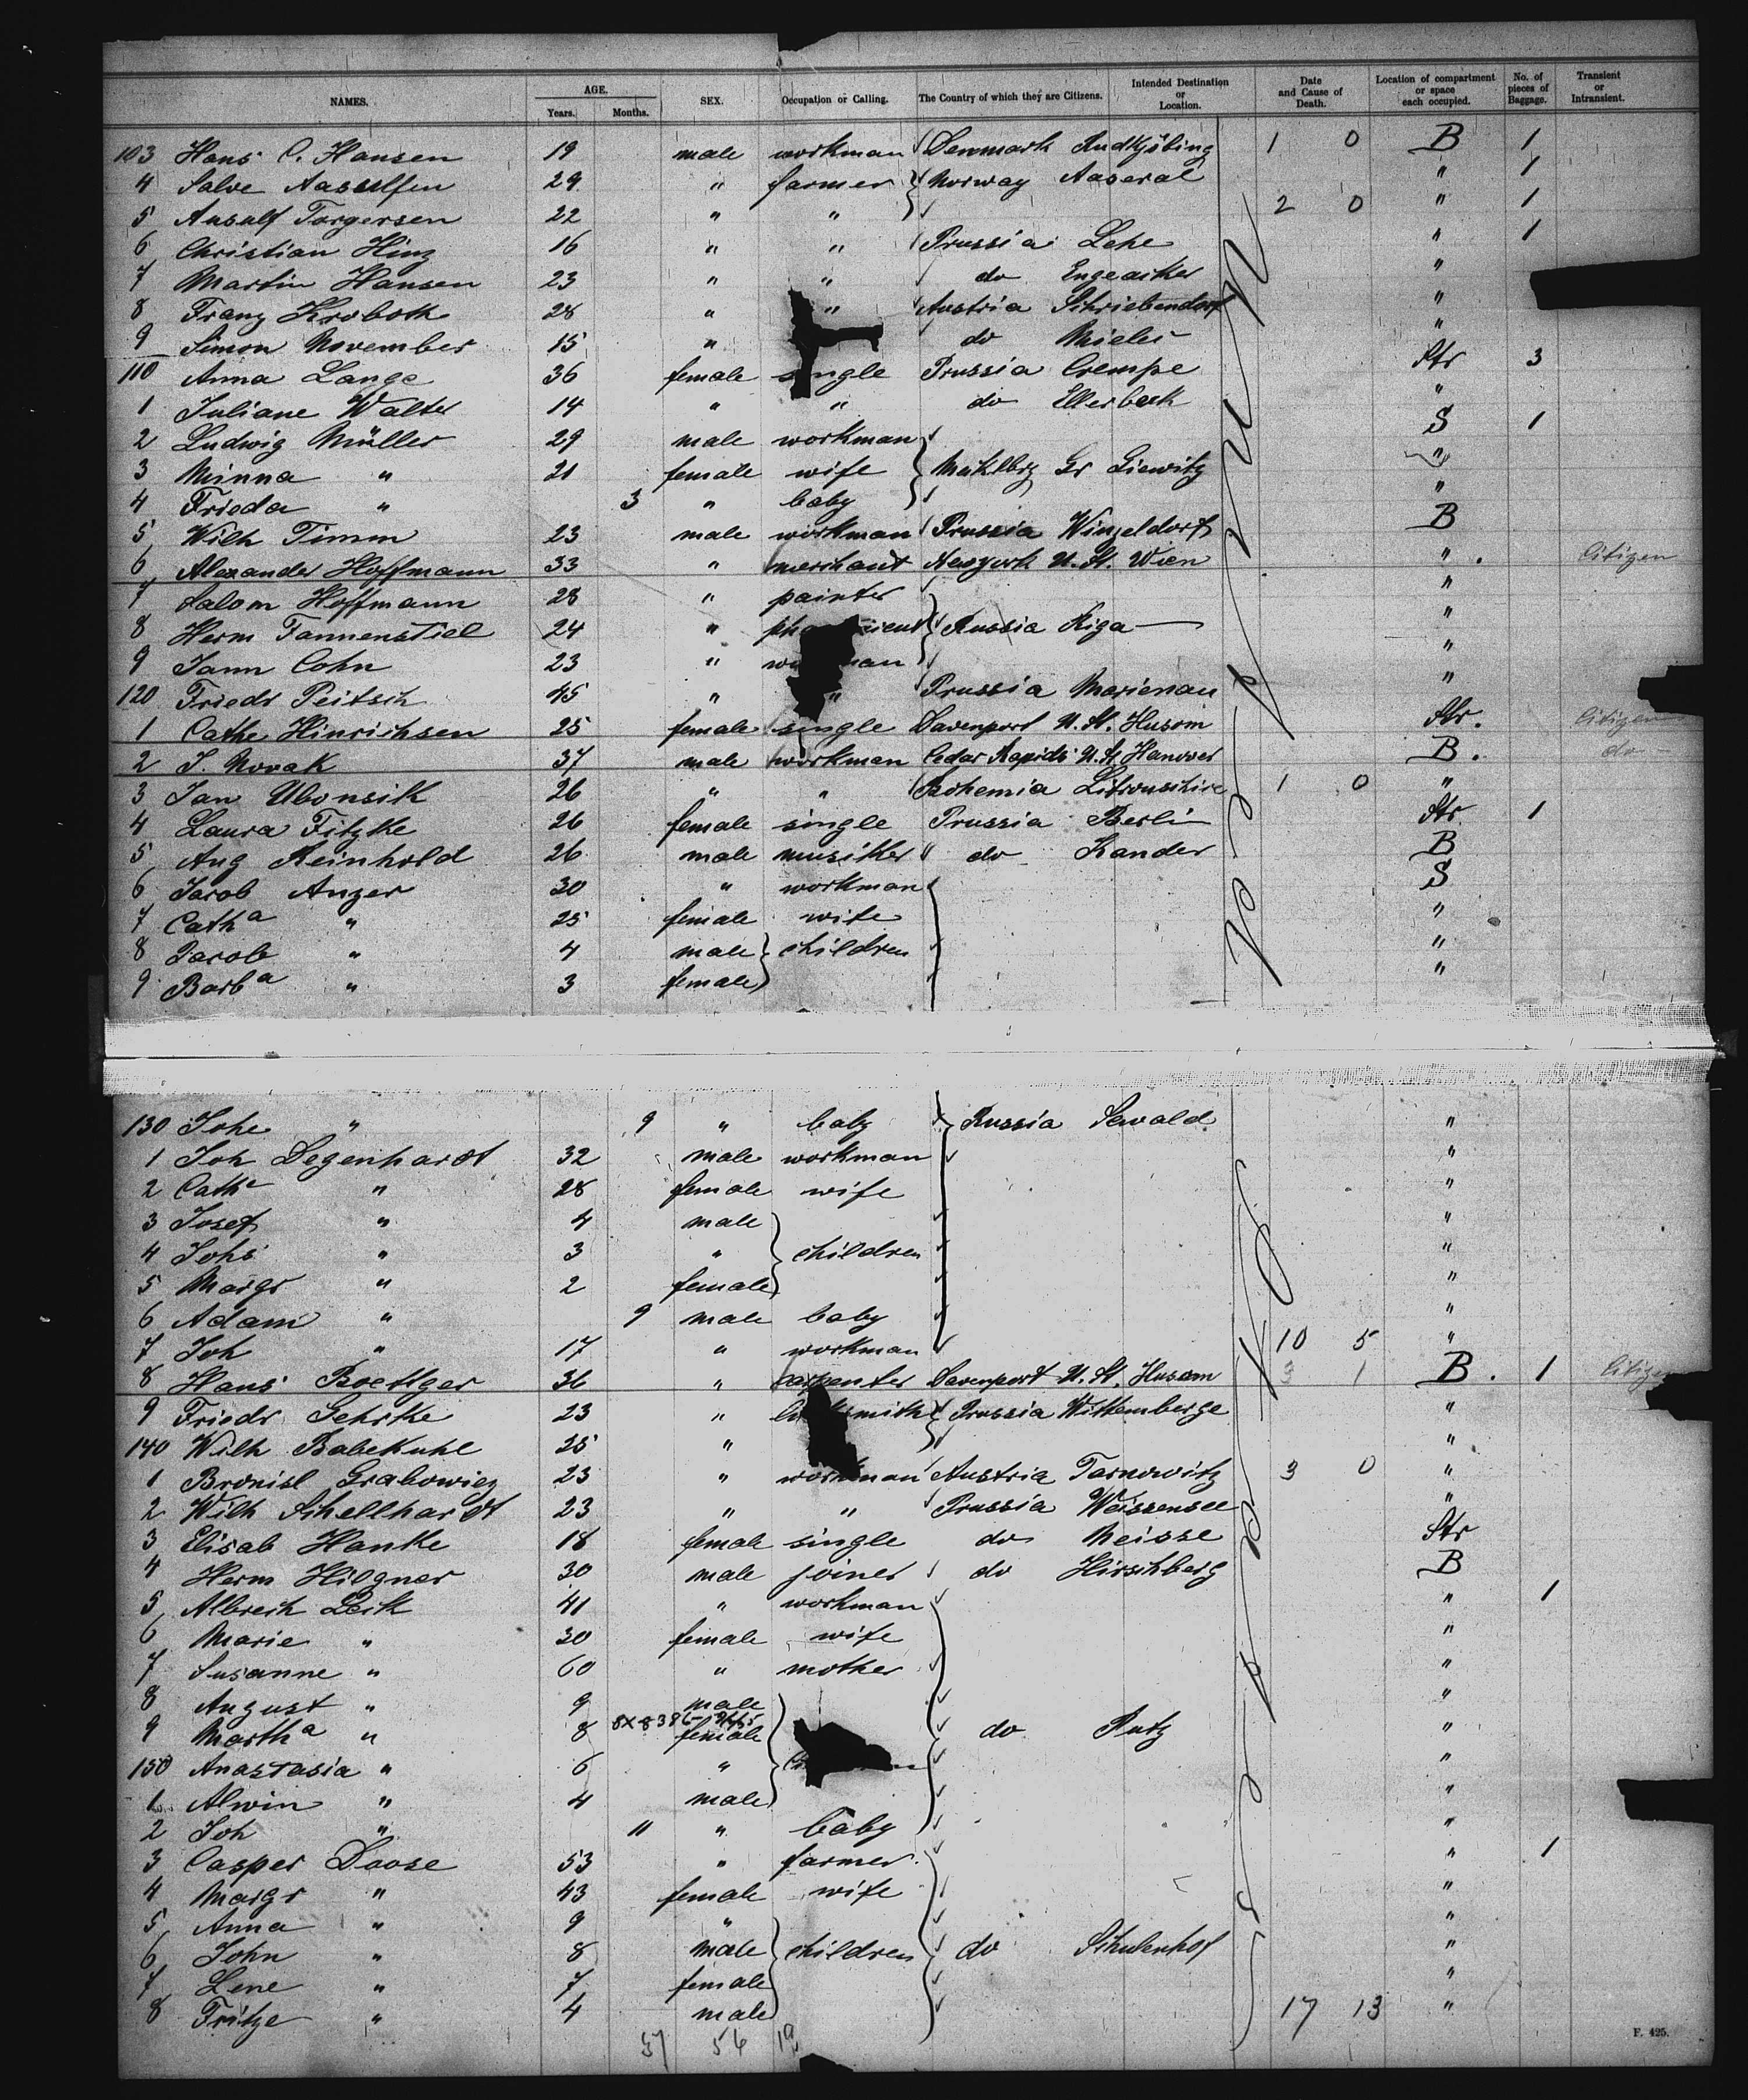 NAMES. AGE. Years. Months. SEX. Occupation or Calling. The Country of which they are Citizens. Intended Destination or Location. Date and Cause of Death. Location of compartment or space each occupied. No. of pieces of Baggage. Transient or Intransient.
103 Hans C. Hansen 19 male workman Denmark Rudkjöbing 1 0 B 1
4 Salve Aasulfsen 29 " farmer Norway Aaseral " 1
5 Aasulf Torgersen 22 " " 2 0 " 1
6 Christian Hinz 16 " " Prussia Lehe " 1
7 Martin Hansen 23 " " do Engeacker "
8 Franz Kroboth 28 " " Austria Schriebendorf "
9 Simon November 15 " do Mielec "
110 Anna Lange 36 female single Prussia Crempe Str 3
1 Juliane Walter 14 " " do Ellerbeck "
2 Ludwig Müller 29 male workman S 1
3 Minna " 21 female wife Mecklbg Gr Gievitz "
4 Frieda " 3 " baby "
5 Wilh Timm 23 male workman Prussia Winzeldorf B
6 Alexander Hoffmann 33 " merchant Newyork U. St. Wien " . Citizen
7 Salom Hoffmann 28 " painter "
8 Herm Tannenstiel 24 " Russia Riga "
9 Jann Cohn 23 " workman "
120 Friedr Peitsch 45 " " Prussia Marienau "
1 Cathe Hinrichsen 25 female single Davenport U. St. Husom Str. Citizen
2 J. Novak 37 male workman Cedar Rapids U. St. Hanover B. do
3 Jan Ubonsik 26 " " Bohemia 1 0 "
4 Laura Fitzke 26 female single Prussia Berlin Str. 1
5 Aug Reinhold 26 male musiker do Kander B
6 Jacob Anzer 30 " workman S
7 Catha " 25 female wife "
8 Jacob " 4 male children "
9 Barba " 3 female "
130 Johe " 9 " baby Russia Sewald "
1 Joh Degenhardt 32 male workman "
2 Cathe " 28 female wife "
3 Josef " 4 male "
4 Johs " 3 " children "
5 Margr " 2 female "
6 Adam " 9 male baby "
7 Joh " 17 " workman 10 5 "
8 Hans Boettger 36 " carpenter Davenport U. St. Husom 3 1 B. 1 Citizen
9 Friedr Gehrke 23 " Prussia Wittemberge "
140 Wilh Babekuhl 25 " "
1 Bronisl Grabowicz 23 " workman Austria Tarnowitz 3 0 "
2 Wilh Schellhardt 23 " " Prussia Weissensee "
3 Elisab Hanke 18 female single do Neisse Str
4 Herm Hilgner 30 male joiner do Hirschberg B
5 Albrech Leik 41 " workman " 1
6 Marie " 30 female wife "
7 Susanne " 60 " mother "
8 August " 9 male "
9 Martha " 8 female do Rutz "
150 Anastasia " 6 " "
1 Alwin " 4 male "
2 Joh " 11 " baby "
3 Casper Doose 53 " farmer " 1
4 Margr " 43 female wife "
5 Anna " 9 " "
6 John " 8 male children do Schulenhof "
7 Lene " 7 female "
8 Fritze " 4 male 17 13 "
37 54 19
F. 425.